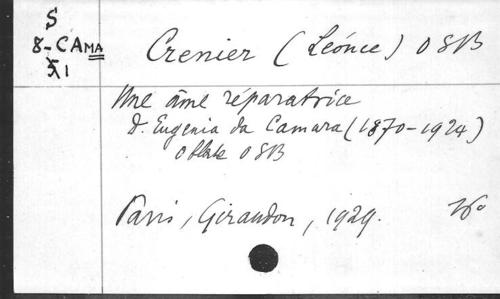 S
8-CAMA
51
Crenier (Léonce) OSB
Une âme réparatrice
D. Eugenia da Camara (1870-1924)
oblate OSB
Paris, Giraudon, 1929.